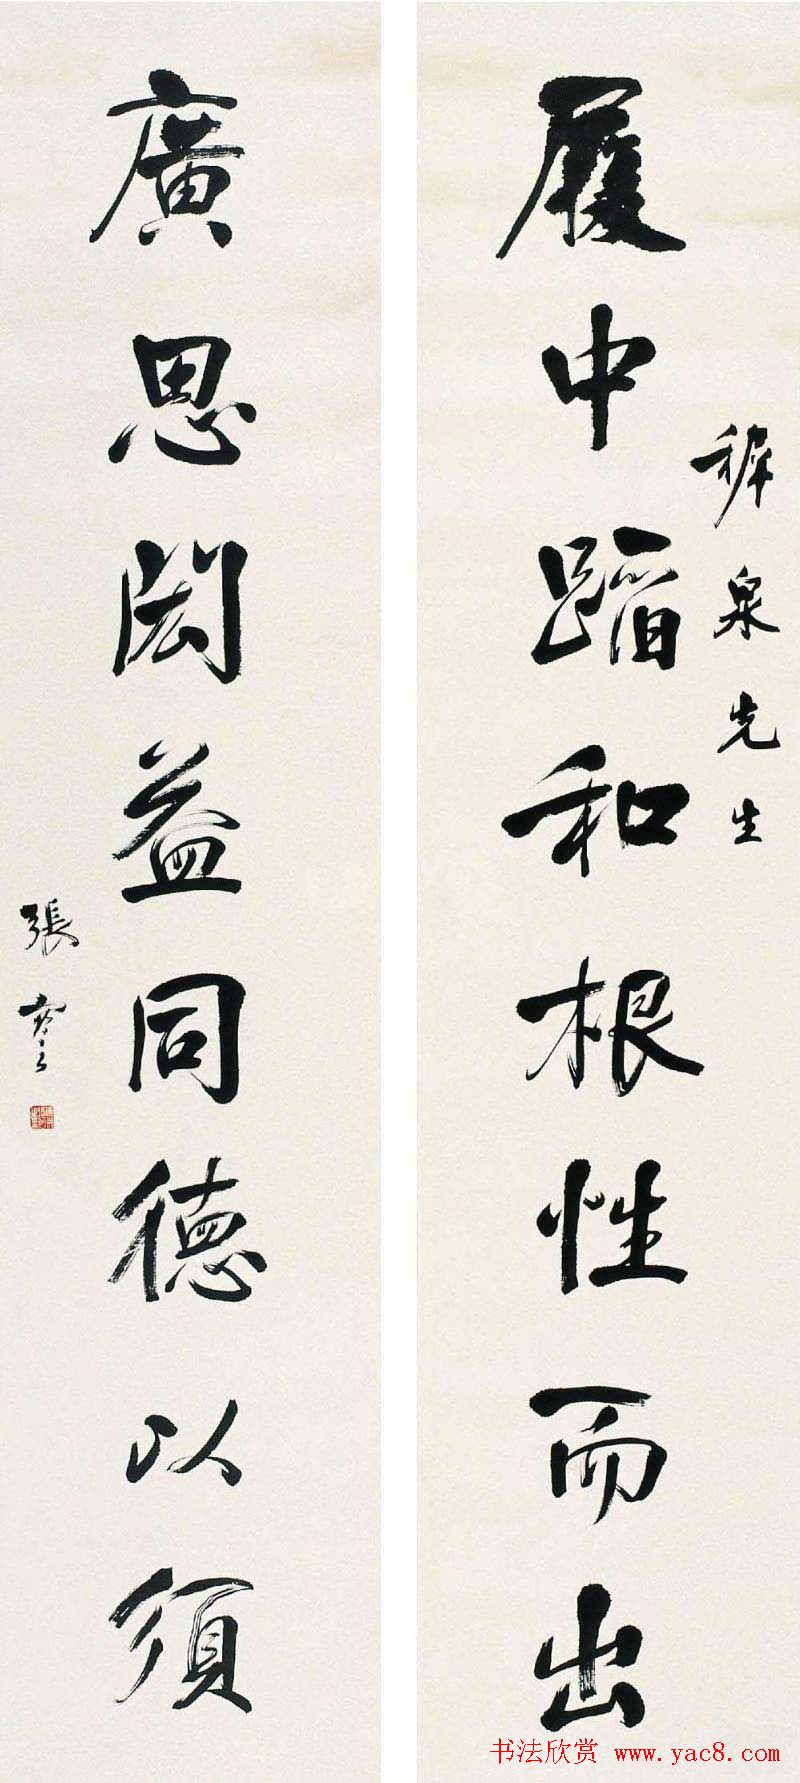 稺泉先生
履中蹈和根性而出
廣思閎益同德以須
張謇
书法欣赏 www.yac8.com